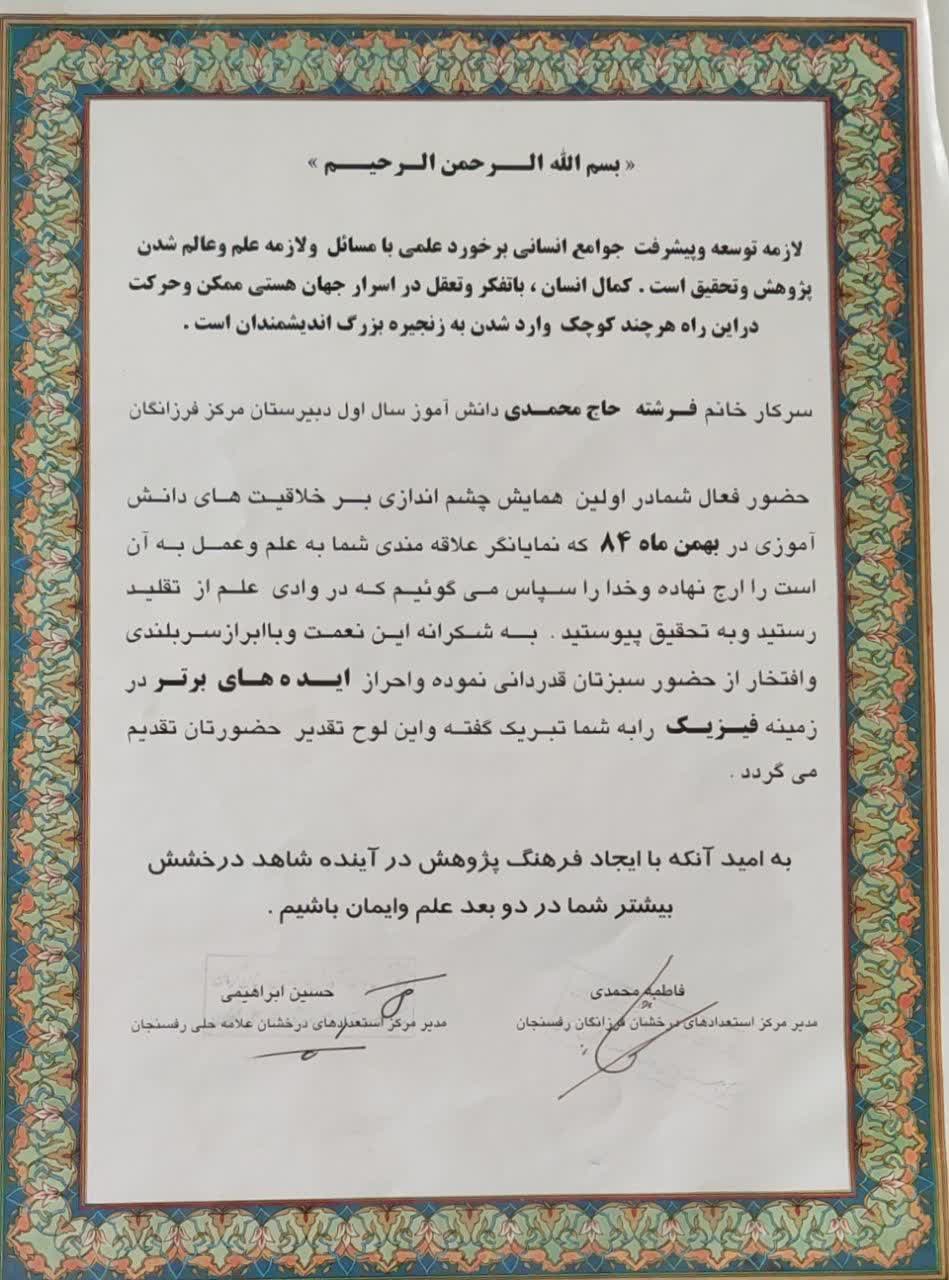 « بسم الله الـــرحمن الـرحیـــم »
لازمه توسعه وپیشرفت جوامع انسانی برخورد علمی با مسائل ولازمه علم وعالم شدن
پژوهش وتحقیق است . کمال انسان ، باتفکر وتعقل در اسرار جهان هستی ممکن وحرکت
دراین راه هرچند کوچک وارد شدن به زنجیره بزرگ اندیشمندان است .
سرکار خانم فـرشته حاج محمـدی دانش آموز سال اول دبیرستان مرکز فرزانگان
حضور فعال شمادر اولین همایش چشم اندازی بـر خلاقیـت هـای دانـش
آموزی در بهمن ماه ۸۴ که نمایانگر علاقه مندی شما به علم وعمـل بـه آن
است را ارج نهاده وخدا را سـپاس مـی گوئیـم کـه در وادی علـم از تقلیـد
رستید وبه تحقیق پیوستید . بـه شـکرانه ایـن نعمـت وبـاابرازسـربلندی
وافتخار از حضور سبزتان قدردانی نموده واحراز ایـده هـای برتـر در
زمینه فیـزیـک رابه شما تبریک گفتـه واین لوح تقدیر حضورتان تقدیم
می گردد .
به امید آنکه با ایجاد فرهنگ پژوهش در آینده شاهد درخشش
بیشتر شما در دو بعد علم وایمان باشیم .
فاطمه محمدی
مدیر مرکز استعدادهای درخشان فرزانگان رفسنجان
حسین ابراهیمی
مدیر مرکز استعدادهای درخشان علامه حلی رفسنجان